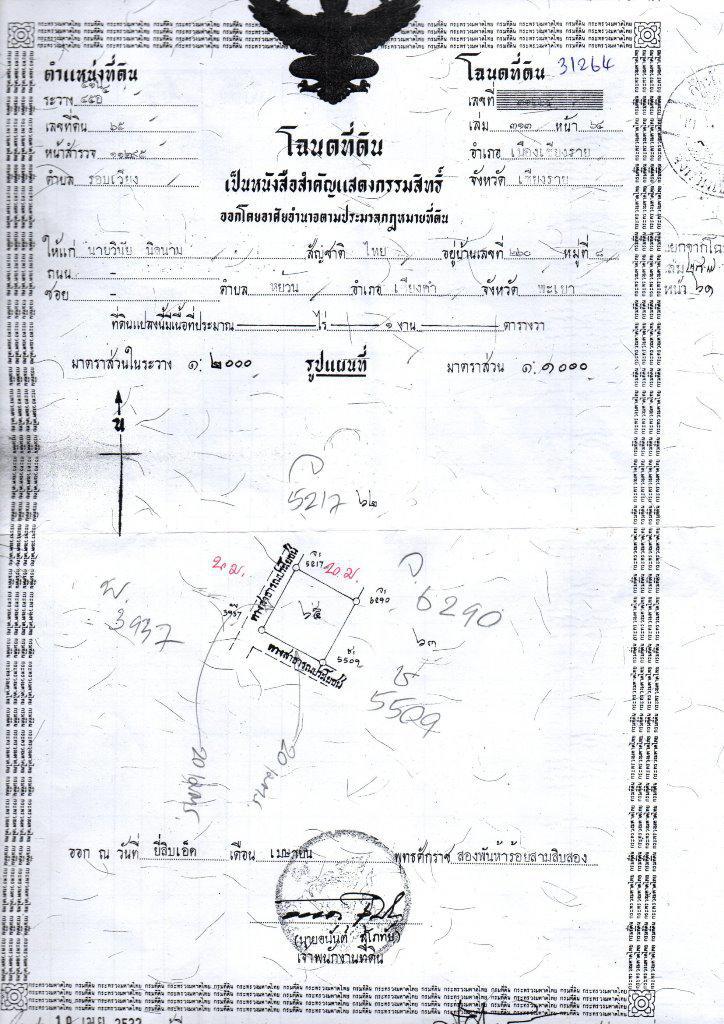 ตำแหน่งที่ดิน
ระวาง
เลขที่ดิน ๖๕
หน้าสำรวจ ๑๑๒๙๕
ตำบล รอบเวียง
โฉนดที่ดิน 31264
เลขที่
เล่ม ๓๑๓ หน้า ๖๔
อำเภอ เมืองเชียงราย
จังหวัด เชียงราย
โฉนดที่ดิน
เป็นหนังสือสำคัญแสดงกรรมสิทธิ์
ออกโดยอาศัยอำนาจตามประมวลกฎหมายที่ดิน
ให้แก่ นายวินัย นิดนาม สัญชาติ ไทย อยู่บ้านเลขที่ ๒๖๐ หมู่ที่ ๘
ถนน -
ซอย - ตำบล หย่วน อำเภอ เชียงคำ จังหวัด พะเยา
ที่ดินแปลงนี้มีเนื้อที่ประมาณ ไร่ ๑ งาน ตารางวา
มาตราส่วนในระวาง ๑:๒๐๐๐ รูปแผนที่ มาตราส่วน ๑:๑๐๐๐
น
จ
5217 ๖๒
๒๐ ม. จ 5217 ๒๐ ม.
จ 6290
จ
6290
พ.
3937
ทางสาธารณประโยชน์
๖๕
๖๓
ช 5509
ทางสาธารณประโยชน์
ช
5509
20 เมตร.
20 เมตร.
ออก ณ วันที่ ยี่สิบเอ็ด เดือน เมษายน พุทธศักราช สองพันห้าร้อยสามสิบสอง
(นายอนันต์ สุโภทัย)
เจ้าพนักงานที่ดิน